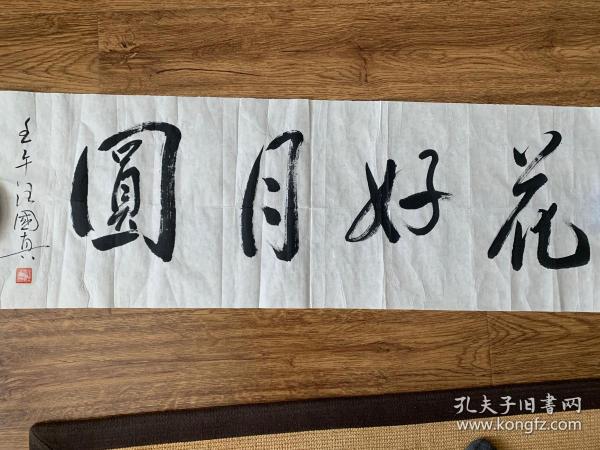 花好月圓
壬午汪國真
孔夫子旧書网
www.kongfz.com